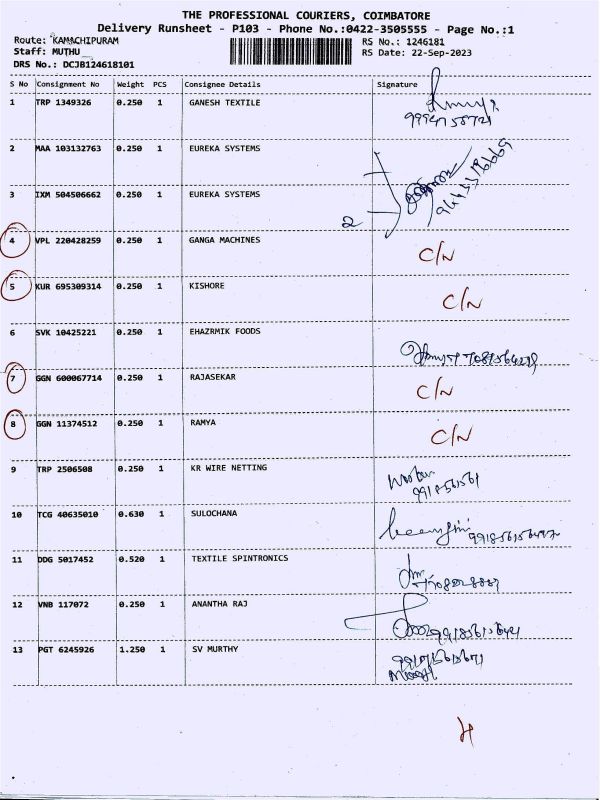 THE PROFESSIONAL COURIERS, COIMBATORE
Delivery Runsheet - P103 - Phone No.:0422-3505555 - Page No.:1
Route: KAMACHIPURAM RS No.: 1246181
Staff: MUTHU RS Date: 22-Sep-2023
DRS No.: DCJB124618101
S No Consignment No Weight PCS Consignee Details Signature
1 TRP 1349326 0.250 1 GANESH TEXTILE
2 MAA 103132763 0.250 1 EUREKA SYSTEMS
3 IXM 504506662 0.250 1 EUREKA SYSTEMS
2
4 VPL 220428259 0.250 1 GANGA MACHINES C/N
5 KUR 695309314 0.250 1 KISHORE C/N
6 SVK 10425221 0.250 1 EHAZRMIK FOODS
7 GGN 600067714 0.250 1 RAJASEKAR C/N
8 GGN 11374512 0.250 1 RAMYA C/N
9 TRP 2506508 0.250 1 KR WIRE NETTING
10 TCG 40635010 0.630 1 SULOCHANA
11 DDG 5017452 0.520 1 TEXTILE SPINTRONICS
12 VNB 117072 0.250 1 ANANTHA RAJ
13 PGT 6245926 1.250 1 SV MURTHY